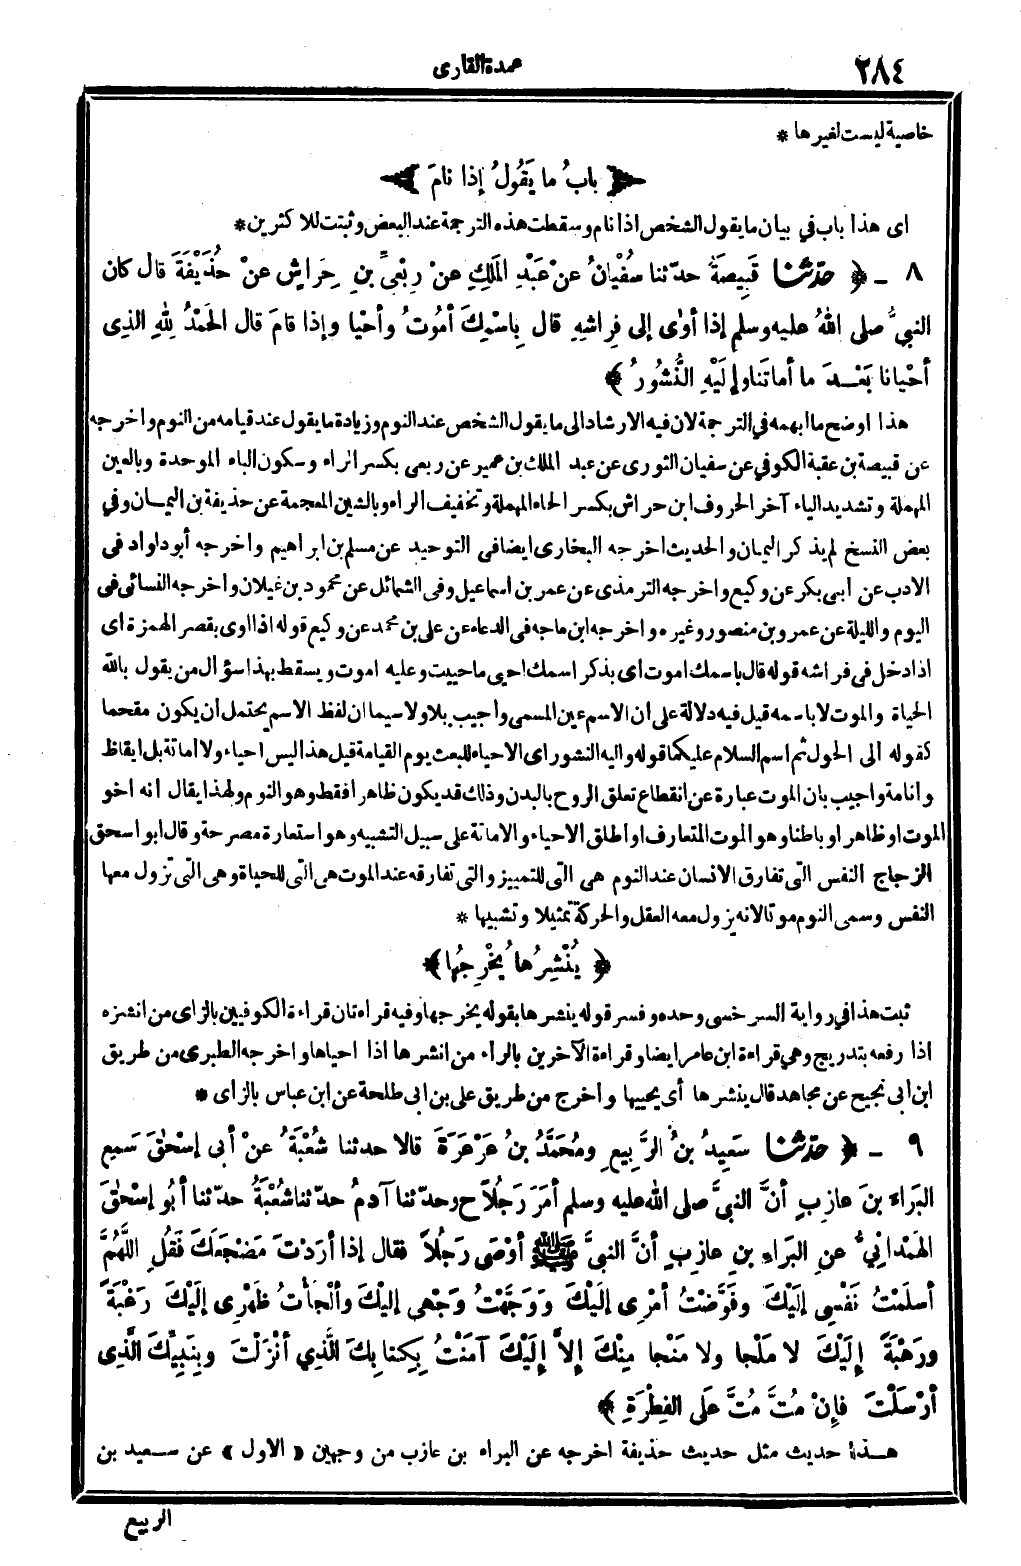 ٢٨٤
عمدة القارى
خاصية ليست لغيرها *
﴿ بابُ ما يَقُولُ إذا نامَ ﴾
اى هذا باب في بيان ما يقول الشخص اذا نام وسقطت هذه الترجمة عند البعض وثبتت للاكثرين *
٨ ـ ﴿ حدّثنا قَبِيصَةُ حدّثنا سُفْيانُ عنْ عَبْدِ المَلِكِ عنْ رِبْعِيِّ بنِ حِرَاشٍ عنْ حُذَيْفَةَ قال كان
النبيُّ صلى اللهُ عليه وسلم إذا أوَى إلى فِراشِهِ قال بِاسْمِكَ أمُوتُ وأحْيا وإذا قامَ قال الحَمْدُ لِلهِ الذِى
أحْيانا بَعْدَ ما أماتَنا وإلَيْهِ النُّشُورُ ﴾
هذا اوضح ما ابهمه في الترجمة لان فيه الارشاد الى ما يقول الشخص عند النوم وزيادة ما يقول عند قيامه من النوم واخرجه
عن قبيصة بن عقبة الكوفي عن سفيان الثورى عن عبد الملك بن عمير عن ربعى بكسر الراء وسكون الباء الموحدة وبالعين
المهملة وتشديد الياء آخر الحروف ابن حراش بكسر الحاء المهملة وتخفيف الراء وبالشين المعجمة عن حذيفة بن اليمان وفي
بعض النسخ لم يذكر اليمان والحديث اخرجه البخارى ايضا فى التوحيد عن مسلم بن ابراهيم واخرجه أبو داود فى
الادب عن أبى بكر عن وكيع واخرجه الترمذى عن عمر بن اسماعيل وفى الشمائل عن محمود بن غيلان واخرجه النسائى فى
اليوم والليلة عن عمرو بن منصور وغيره واخرجه ابن ماجه فى الدعاء عن على بن محمد عن وكيع قوله اذا اوى بقصر الهمزة اى
اذا دخل فى فراشه قوله قال باسمك اموت أى بذكر اسمك احيى ما حييت وعليه اموت ويسقط بهذا سؤال من يقول بالله
الحياة والموت لا باسمه قيل فيه دلالة على أن الاسم عين المسمى واجيب بلا ولا سيما ان لفظ الاسم يحتمل أن يكون مقحما
كقوله الى الحول ثم اسم السلام عليكما قوله واليه النشور اى الاحياء للبعث يوم القيامة قيل هذا ليس احياء ولا اماتة بل ايقاظ
وانامة واجيب بان الموت عبارة عن انقطاع تعلق الروح بالبدن وذلك قد يكون ظاهرا فقط وهو النوم ولهذا يقال انه اخو
الموت او ظاهرا وباطنا وهو الموت المتعارف او اطلق الاحياء والاماتة على سبيل التشبيه وهو استعارة مصرحة وقال ابو اسحق
الزجاج النفس التى تفارق الانسان عند النوم هى التى للتمييز والتى تفارقه عند الموت هى التى للحياة وهى التى تزول معها
النفس وسمى النوم موتا لانه يزول معه العقل والحركة تمثيلا وتشبيها *
﴿ يُنْشِرُها يُخْرِجُها ﴾
ثبت هذا في رواية السرخسى وحده وفسر قوله ينشرها بقوله يخرجها وفيه قراءتان قراءة الكوفيين بالزاى من انشزه
اذا رفعه بتدريج وهي قراءة ابن عامر ايضا وقراءة الآخرين بالراء من انشرها اذا احياها واخرجه الطبرى من طريق
ابن أبى نجيح عن مجاهد قال ينشرها أى يحييها واخرج من طريق على بن ابى طلحة عن ابن عباس بالزاى *
٩ ـ ﴿ حدّثنا سَعِيدُ بنُ الرَّبِيعِ ومُحَمَّدُ بنُ عَرْعَرَةَ قالا حدثنا شُعْبَةُ عنْ أبى إسْحٰقَ سَمِعَ
البَرَاءَ بنَ عازِبٍ أنَّ النبيَّ صلى الله عليه وسلم أمَرَ رَجُلاً ح وحدّثنا آدمُ حدّثنا شُعْبَةُ حدّثنا أبُو إسْحٰقَ
الهَمْدانِيُّ عنِ البَرَاءِ بنِ عازِبٍ أنَّ النبيَّ ﷺ أوْصَى رَجُلاً فقال إذا أرَدْتَ مَضْجَعَكَ فَقُلِ اللّٰهُمَّ
أسْلَمْتُ نَفْسِى إلَيْكَ وفَوَّضْتُ أمْرِى إلَيْكَ ووَجَّهْتُ وَجْهِى إلَيْكَ وألْجَأْتُ ظَهْرِى إلَيْكَ رَغْبَةً
ورَهْبَةً إلَيْكَ لا مَلْجا ولا مَنْجا مِنْكَ إلاَّ إلَيْكَ آمَنْتُ بِكِتابِكَ الَّذِي أنْزَلْتَ وبِنَبِيِّكَ الَّذِى
أرْسَلْتَ فإنْ مُتَّ مُتَّ عَلَى الفِطْرَةِ ﴾
هذا حديث مثل حديث حذيفة اخرجه عن البراء بن عازب من وجهين « الاول » عن سعيد بن
الربيع